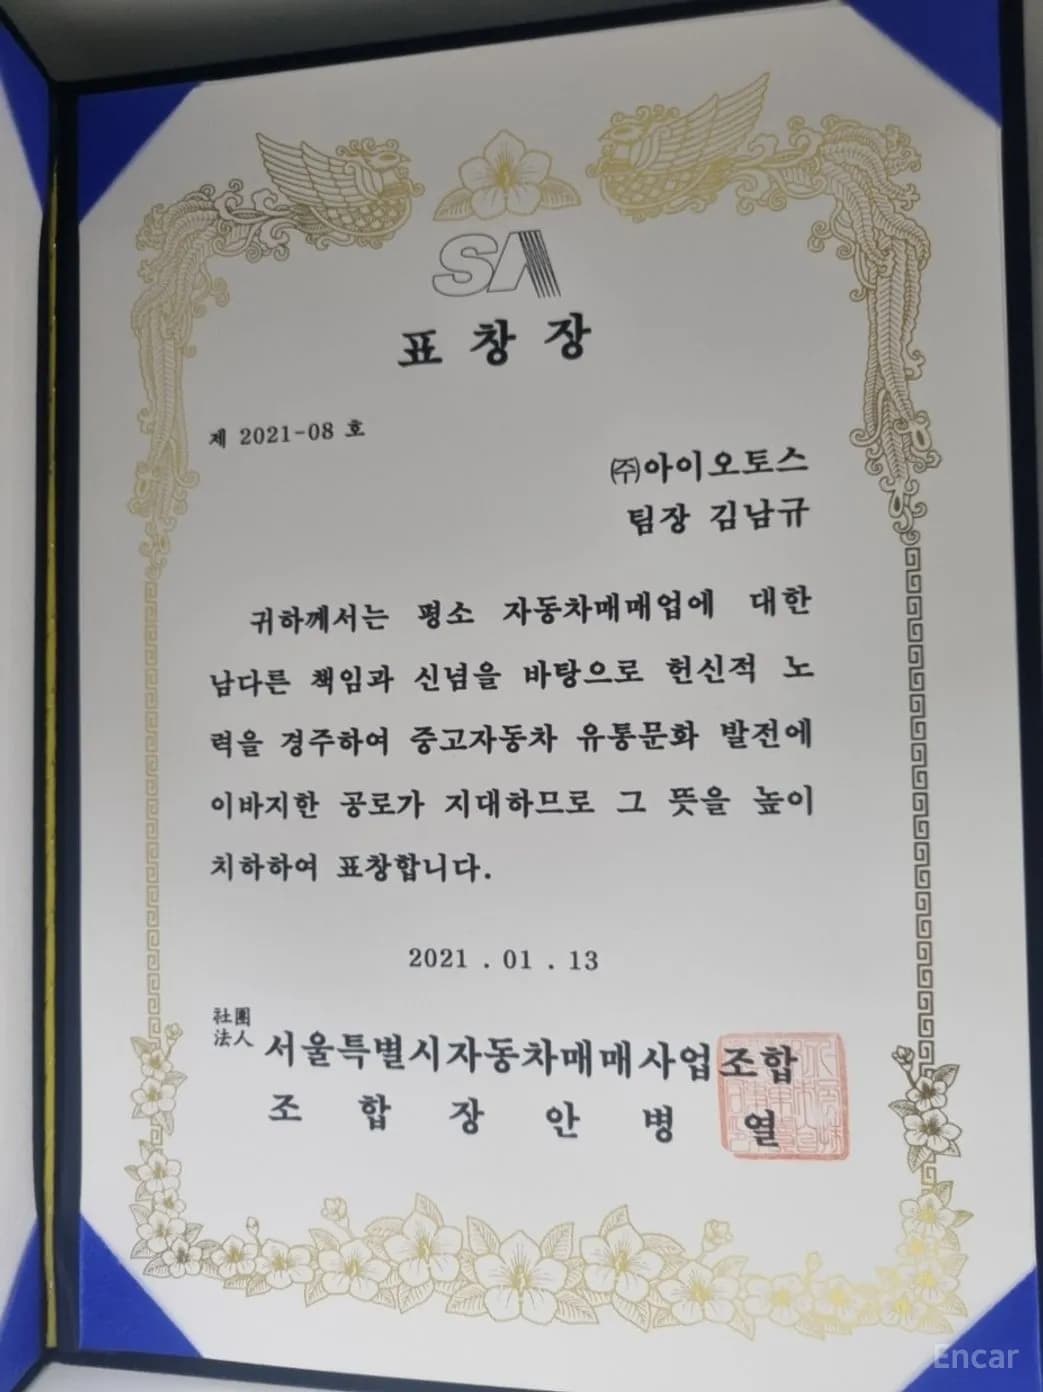 SA
표창장
제 2021-08 호
㈜아이오토스
팀장 김남규
귀하께서는 평소 자동차매매업에 대한
남다른 책임과 신념을 바탕으로 헌신적 노
력을 경주하여 중고자동차 유통문화 발전에
이바지한 공로가 지대하므로 그 뜻을 높이
치하하여 표창합니다.
2021 . 01 . 13
社團
法人
서울특별시자동차매매사업조합
조 합 장 안 병 열
Encar